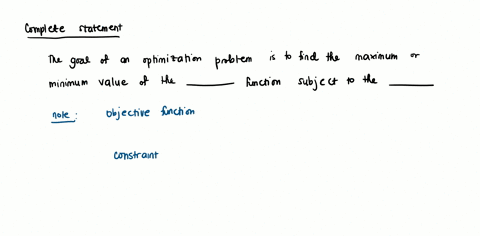 Complete statement
The goal of an optimization problem is to find the maximum or
minimum value of the ______ function subject to the ______
note: Objective function
constraint